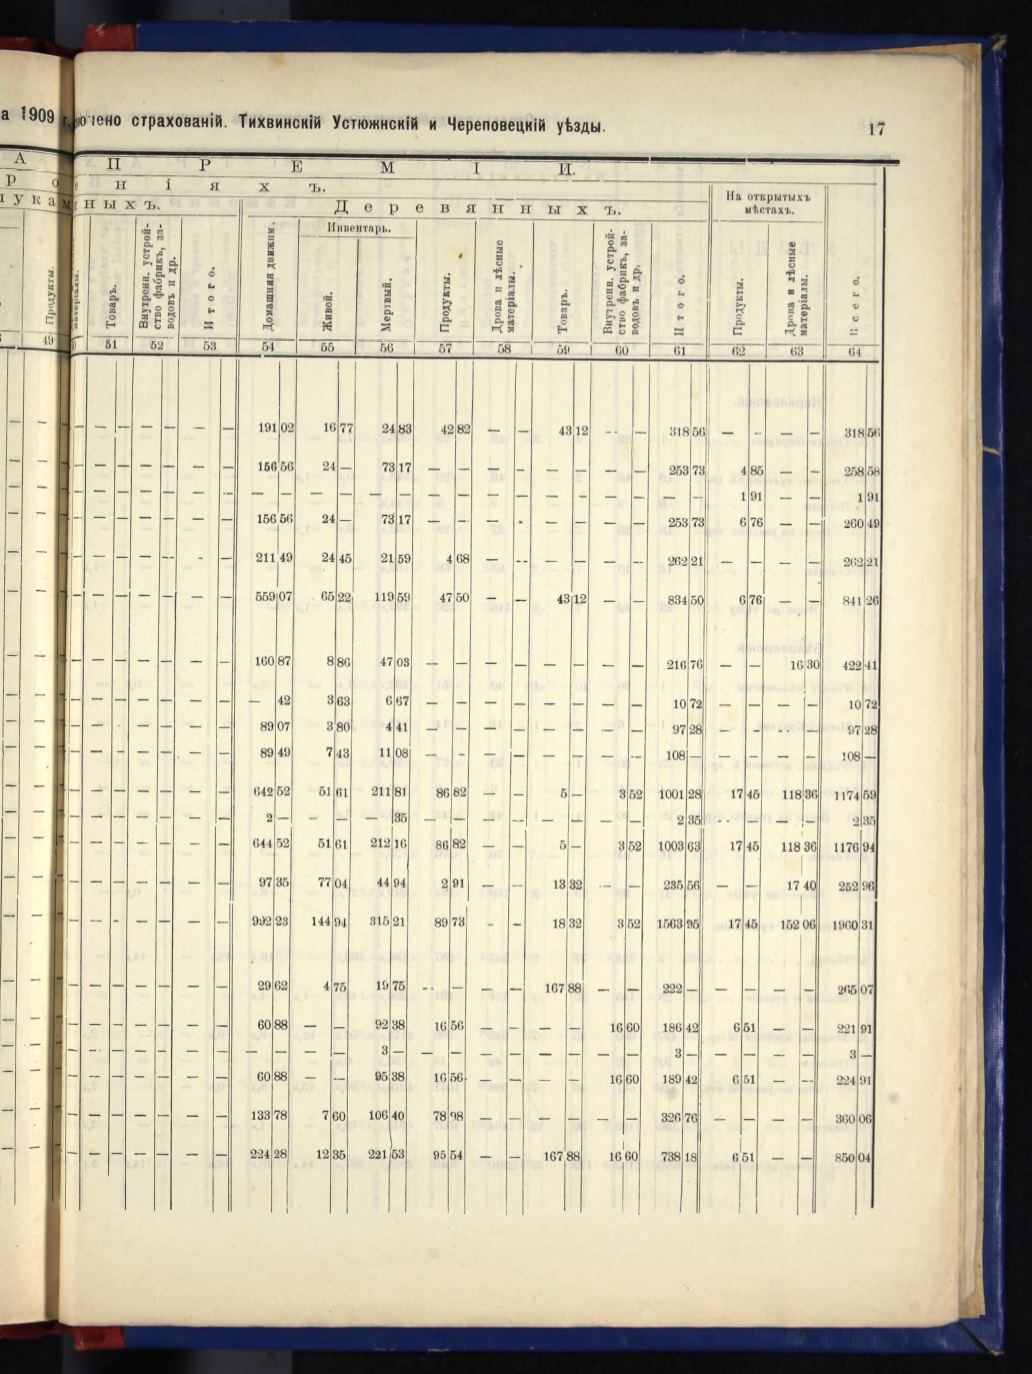 а 1909 г.
ючено страхованій. Тихвинскій Устюжнскій и Череповецкій уѣзды. 17
А П Р Е М І И.
р о н і я х ъ.
лукам ныхъ. Деревянныхъ. На открытыхъ мѣстахъ.
Инвентарь.
Продукты. матеріалы. Товаръ. Внутренн. устройство фабрикъ, заводовъ и др. Итого. Домашняя движим. Живой. Мертвый. Продукты. Дрова и лѣсные матеріалы. Товаръ. Внутренн. устройство фабрикъ, заводовъ и др. Итого. Продукты. Дрова и лѣсные матеріалы. Всего.
49 51 52 53 54 55 56 57 58 59 60 61 62 63 64
— — — — — — — 191 02 16 77 24 83 42 82 — — 43 12 — — 318 56 — — — — 318 56
— — — — — — — 156 56 24 — 73 17 — — — — — — — — 253 73 4 85 — — 258 58
— — — — — — — — — — — — — — — — — — — — — — — 1 91 — — 1 91
— — — — — — — 156 56 24 — 73 17 — — — — — — — — 253 73 6 76 — — 260 49
— — — — — — — 211 49 24 45 21 59 4 68 — — — — — — 262 21 — — — — 262 21
— — — — — — — 559 07 65 22 119 59 47 50 — — 43 12 — — 834 50 6 76 — — 841 26
— — — — — — — 160 87 8 86 47 03 — — — — — — — — 216 76 — — 16 30 422 41
— — — — — — — — 42 3 63 6 67 — — — — — — — — 10 72 — — — — 10 72
— — — — — — — 89 07 3 80 4 41 — — — — — — — — 97 28 — — — — 97 28
— — — — — — — 89 49 7 43 11 08 — — — — — — — — 108 — — — — — 108 —
— — — — — — — 642 52 51 61 211 81 86 82 — — 5 — 3 52 1001 28 17 45 118 36 1174 59
— — — — — — — 2 — — — — 35 — — — — — — — — 2 35 — — — — 2 35
— — — — — — — 644 52 51 61 212 16 86 82 — — 5 — 3 52 1003 63 17 45 118 36 1176 94
— — — — — — — 97 35 77 04 44 94 2 91 — — 13 32 — — 235 56 — — 17 40 252 96
— — — — — — — 992 23 144 94 315 21 89 73 — — 18 32 3 52 1563 95 17 45 152 06 1960 31
— — — — — — — 29 62 4 75 19 75 — — — — 167 88 — — 222 — — — — — 265 07
— — — — — — — 60 88 — — 92 38 16 56 — — — — 16 60 186 42 6 51 — — 221 91
— — — — — — — — — — — 3 — — — — — — — — — 3 — — — — — 3 —
— — — — — — — 60 88 — — 95 38 16 56 — — — — 16 60 189 42 6 51 — — 224 91
— — — — — — — 133 78 7 60 106 40 78 98 — — — — — — 326 76 — — — — 360 06
— — — — — — — 224 28 12 35 221 53 95 54 — — 167 88 16 60 738 18 6 51 — — 850 04